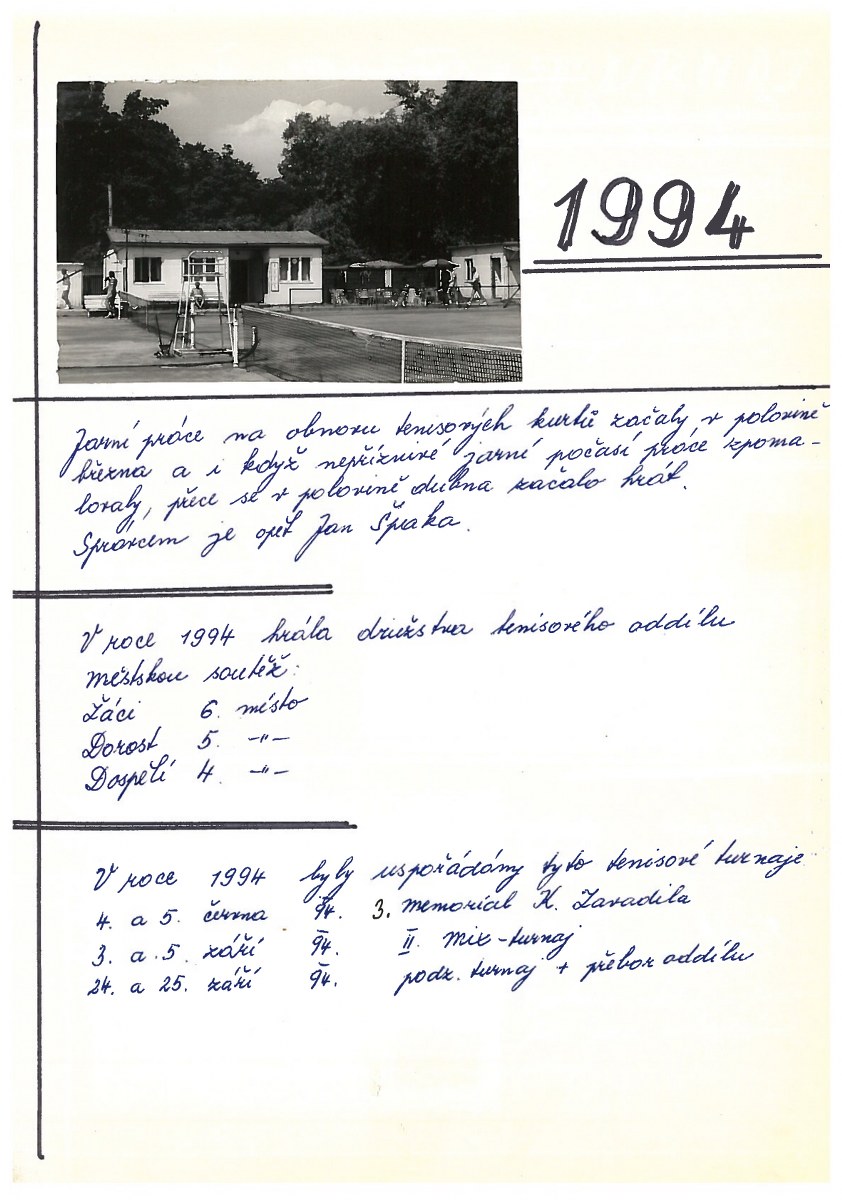 1994
Jarní práce na obnovu tenisových kurtů začaly v polovině
března a i když nepříznivé jarní počasí práce zpoma-
lovaly, přece se v polovině dubna začalo hrát.
Správcem je opět Jan Špaka.
V roce 1994 hrála družstva tenisového oddílu
městskou soutěž:
Žáci 6. místo
Dorost 5. -"-
Dospělí 4. -"-
V roce 1994 byly uspořádány tyto tenisové turnaje:
4. a 5. června 94. 3. memoriál K. Zavadila
3. a 5. září 94. II. Mix-turnaj
24. a 25. září 94. podz. turnaj + přebor oddílu